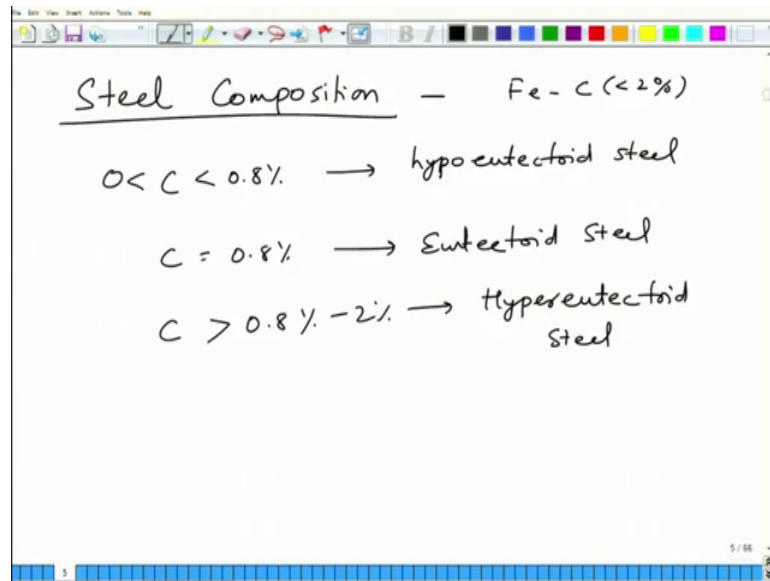 File Edit View Insert Actions Tools Help
B I
Steel Composition - Fe-C (<2%)
0 < C < 0.8% → hypoeutectoid steel
C = 0.8% → Eutectoid Steel
C > 0.8% - 2% → Hypereutectoid
Steel
5/66
5